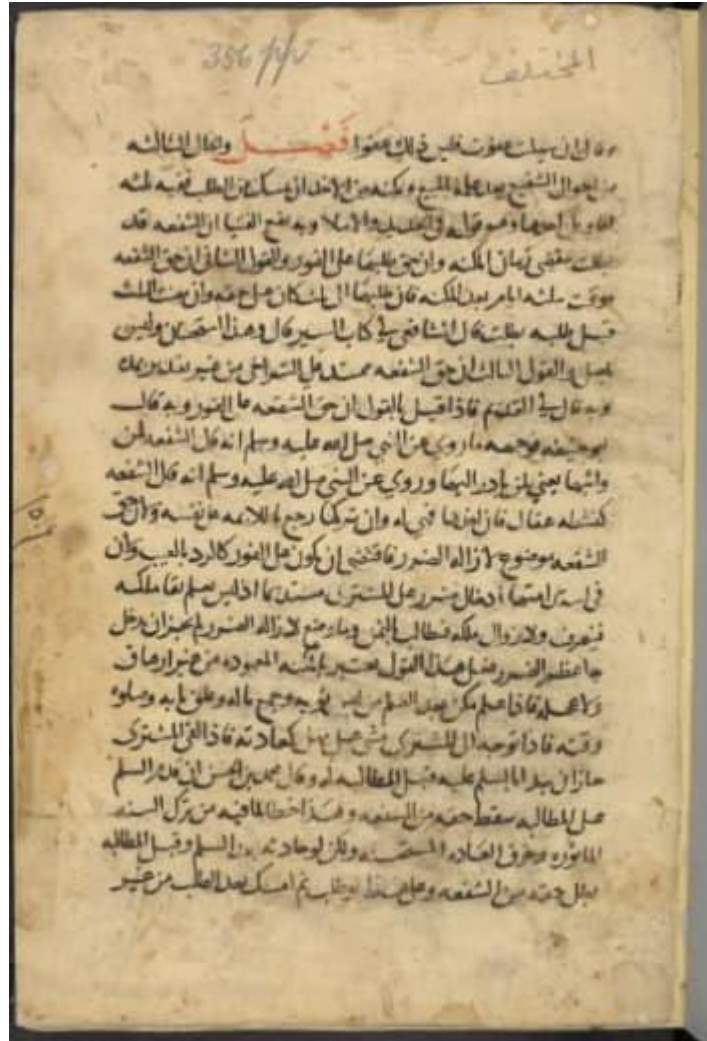 المختلف
356
فليس ذلك عفوا فصل والحال الثالثه
من احوال الشفيع بعد علمه بالمبيع وتمكنه من الاخذ ان يمسك عن الطلب ففيه ثلثه
اقاويل احدها وهو قوله في الجديد والاملا وبه تقع الفتيا ان الشفعه قد
بطلت بمضي زمان المكنه وان حق طلبها على الفور والقول الثاني ان حق الشفعه
موقت بثلثه ايام بعد المكنه فان طلبها الى ثلث كان على حقه وان مضت الثلث
قبل طلبه بطلت قال الشافعي في كتاب السير قال وهذا استحسان وليس
باصل والقول الثالث ان حق الشفعه ممتد على التراخي من غير تقدير بمده
وبه قال في القديم فاذا قيل بالقول ان حق الشفعه على الفور وبه قال
ابو حنيفه فوجهه ما روي عن النبي صلى الله عليه وسلم انه قال الشفعه لمن
واثبها يعني لمن بادر اليها وروي عن النبي صلى الله عليه وسلم انه قال الشفعه
كنشطه عقال فان اخذها فهي له وان تركها رجع باللائمه على نفسه ولان حق
الشفعه موضوع لازاله الضرر فاقتضى ان يكون على الفور كالرد بالعيب ولان
في استدامتها ادخال ضرر على المشتري مستديما اذ ليس يعلم بقا ملكه
فيتصرف ولا زوال ملكه فيطالب بالثمن وما وضع لازاله الضرر لم يجز ان يدخل
به اعظم الضرر فعلى هذا القول يعتبر بالمكنه المعهوده من غير ارهاق
ولا عجله فاذا علم مكن بعد العلم من لبس ثوبه وجمع ماله وغلق بابه وصلوه
وقته فاذا توجه الى المشتري مشى على مهل كعادته فاذا لقي المشتري
جاز ان يبدا بالسلم عليه قبل المطالبه له وقال محمد بن الحسن ان قدم السلم
على المطالبه سقط حقه من الشفعه وهذا خطا لما فيه من ترك السنه
الماثوره وخرق العاده المستحسنه ولكن لو حادثه بعد السلم وقبل المطالبه
بطل حقه من الشفعه وعلى هذا لو طلب ثم امسك بعد الطلب من غير